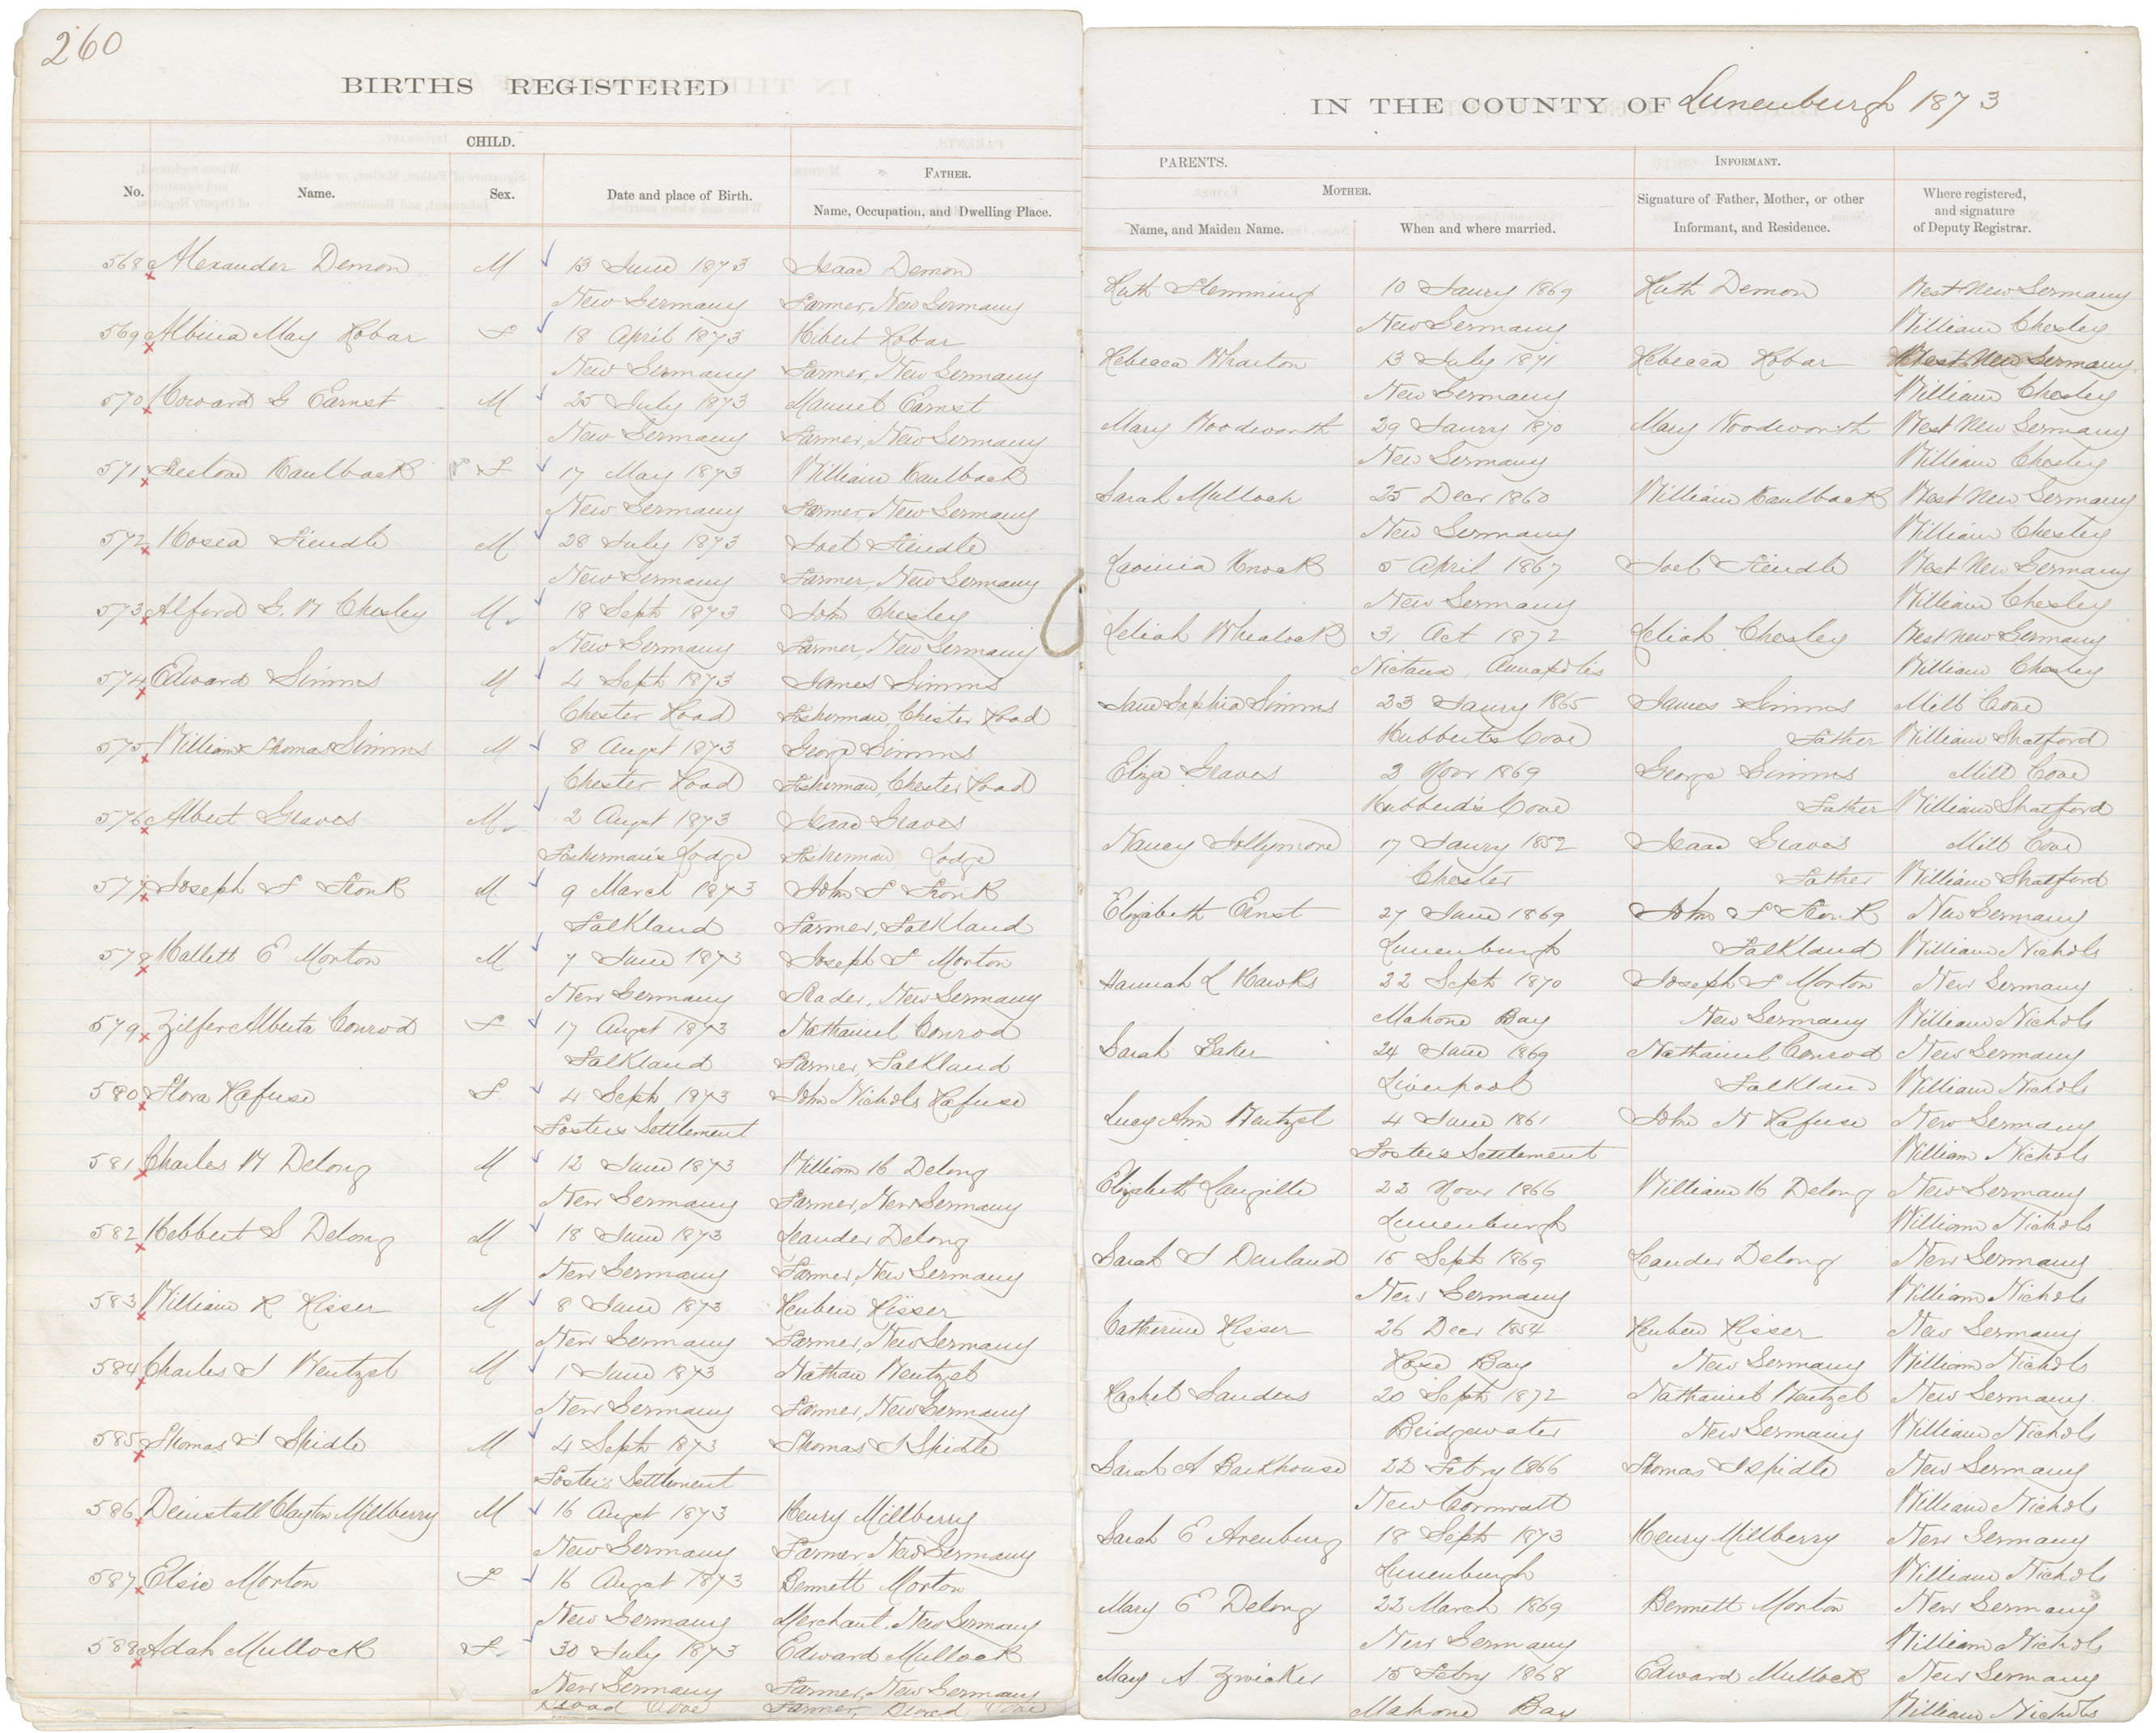 260
BIRTHS REGISTERED
IN THE COUNTY OF Lunenburgh 1873
CHILD.
PARENTS.
INFORMANT.
No.
Name.
Sex.
Date and place of Birth.
FATHER.
Name, Occupation, and Dwelling Place.
MOTHER.
Name, and Maiden Name.
When and where married.
Signature of Father, Mother, or other
Informant, and Residence.
Where registered,
and signature
of Deputy Registrar.
568 Alexander Demon M 13 June 1873 Isaac Demon Ruth Flemming 10 Janry 1869 Ruth Demon West New Germany
New Germany Farmer, New Germany New Germany William Chesley
569 Albina May Robar F 18 April 1873 Hibert Robar Rebecca Wharton 13 July 1871 Rebecca Robar West New Germany
New Germany Farmer, New Germany New Germany William Chesley
570 Howard G Earnst M 25 July 1873 Manuel Earnst Mary Woodworth 29 Janry 1870 Mary Woodworth West New Germany
New Germany Farmer, New Germany New Germany William Chesley
571 Kaulback F 17 May 1873 William Kaulback Sarah Mullock 25 Decr 1860 William Kaulback West New Germany
New Germany Farmer, New Germany New Germany William Chesley
572 Hosea Feindle M 28 July 1873 Joel Feindle Lavinia Knock 5 April 1867 Joel Feindle West New Germany
New Germany Farmer, New Germany New Germany William Chesley
573 Alford G. W Chesley M 18 Sept 1873 John Chesley Leliah Whealock 31 Oct 1872 Leliah Chesley West New Germany
New Germany Farmer, New Germany Nictaux, Annapolis William Chesley
574 Edward Simms M 4 Sept 1873 James Simms Jane Sophia Simms 23 Janry 1865 James Simms Mill Cove
Chester Road Fisherman, Chester Road Hubberts Cove Father William Shatford
575 William Thomas Simms M 8 Augst 1873 George Simms Eliza Graves 3 Novr 1869 George Simms Mill Cove
Chester Road Fisherman, Chester Road Hubberd's Cove Father William Shatford
576 Albert Graves M 2 Augst 1873 Isaac Graves Nancy Jollymore 17 Janry 1852 Isaac Graves Mill Cove
Fisherman's Lodge Fisherman Lodge Chester Father William Shatford
577 Joseph F Fronk M 9 March 1873 John F Fronk Elizabeth Ernst 27 June 1869 John F Fronk New Germany
Falkland Farmer, Falkland Lunenburgh Falkland William Nichols
578 Hallett E Morton M 7 June 1873 Joseph F Morton Hannah L Hawks 22 Sept 1870 Joseph F Morton New Germany
New Germany Trader, New Germany Mahone Bay New Germany William Nichols
579 Zilfer Alberta Conrod F 17 Augst 1873 Nathaniel Conrod Sarah Baker 24 June 1869 Nathaniel Conrod New Germany
Falkland Farmer, Falkland Liverpool Falkland William Nichols
580 Flora Rafuse F 4 Sept 1873 John Nichols Rafuse Lucy Ann Wentzel 4 June 1861 John N Rafuse New Germany
Fosters Settlement Fosters Settlement William Nichols
581 Charles W Delong M 12 June 1873 William H Delong Elizabeth Langille 22 Novr 1866 William H Delong New Germany
New Germany Farmer, New Germany Lunenburgh William Nichols
582 Hebbert S Delong M 18 June 1873 Leander Delong Sarah J Durland 15 Sept 1869 Leander Delong New Germany
New Germany Farmer, New Germany New Germany William Nichols
583 William R Risser M 8 June 1873 Reuben Risser Catherine Risser 26 Decr 1854 Reuben Risser New Germany
New Germany Farmer, New Germany Rose Bay New Germany William Nichols
584 Charles J Wentzel M 1 June 1873 Nathan Wentzel Rachel Sanders 20 Sept 1872 Nathaniel Wentzel New Germany
New Germany Farmer, New Germany Bridgewater New Germany William Nichols
585 Thomas J Spidle M 4 Sept 1873 Thomas J Spidle Sarah A Barkhouse 22 Febry 1866 Thomas J Spidle New Germany
Foster's Settlement New Cornwall William Nichols
586 Deinstall Clayton Millberry M 16 Augst 1873 Henry Millberry Sarah E Arenburg 18 Sept 1873 Henry Millberry New Germany
New Germany Farmer, New Germany Lunenburgh William Nichols
587 Elsie Morton F 16 August 1873 Bennett Morton Mary E Delong 22 March 1869 Bennett Morton New Germany
New Germany Merchant, New Germany New Germany William Nichols
588 Adah Mullock F 30 July 1873 Edward Mullock Mary A Zwicker 15 Febry 1868 Edward Mullock New Germany
New Germany Farmer, New Germany Mahone Bay William Nichols